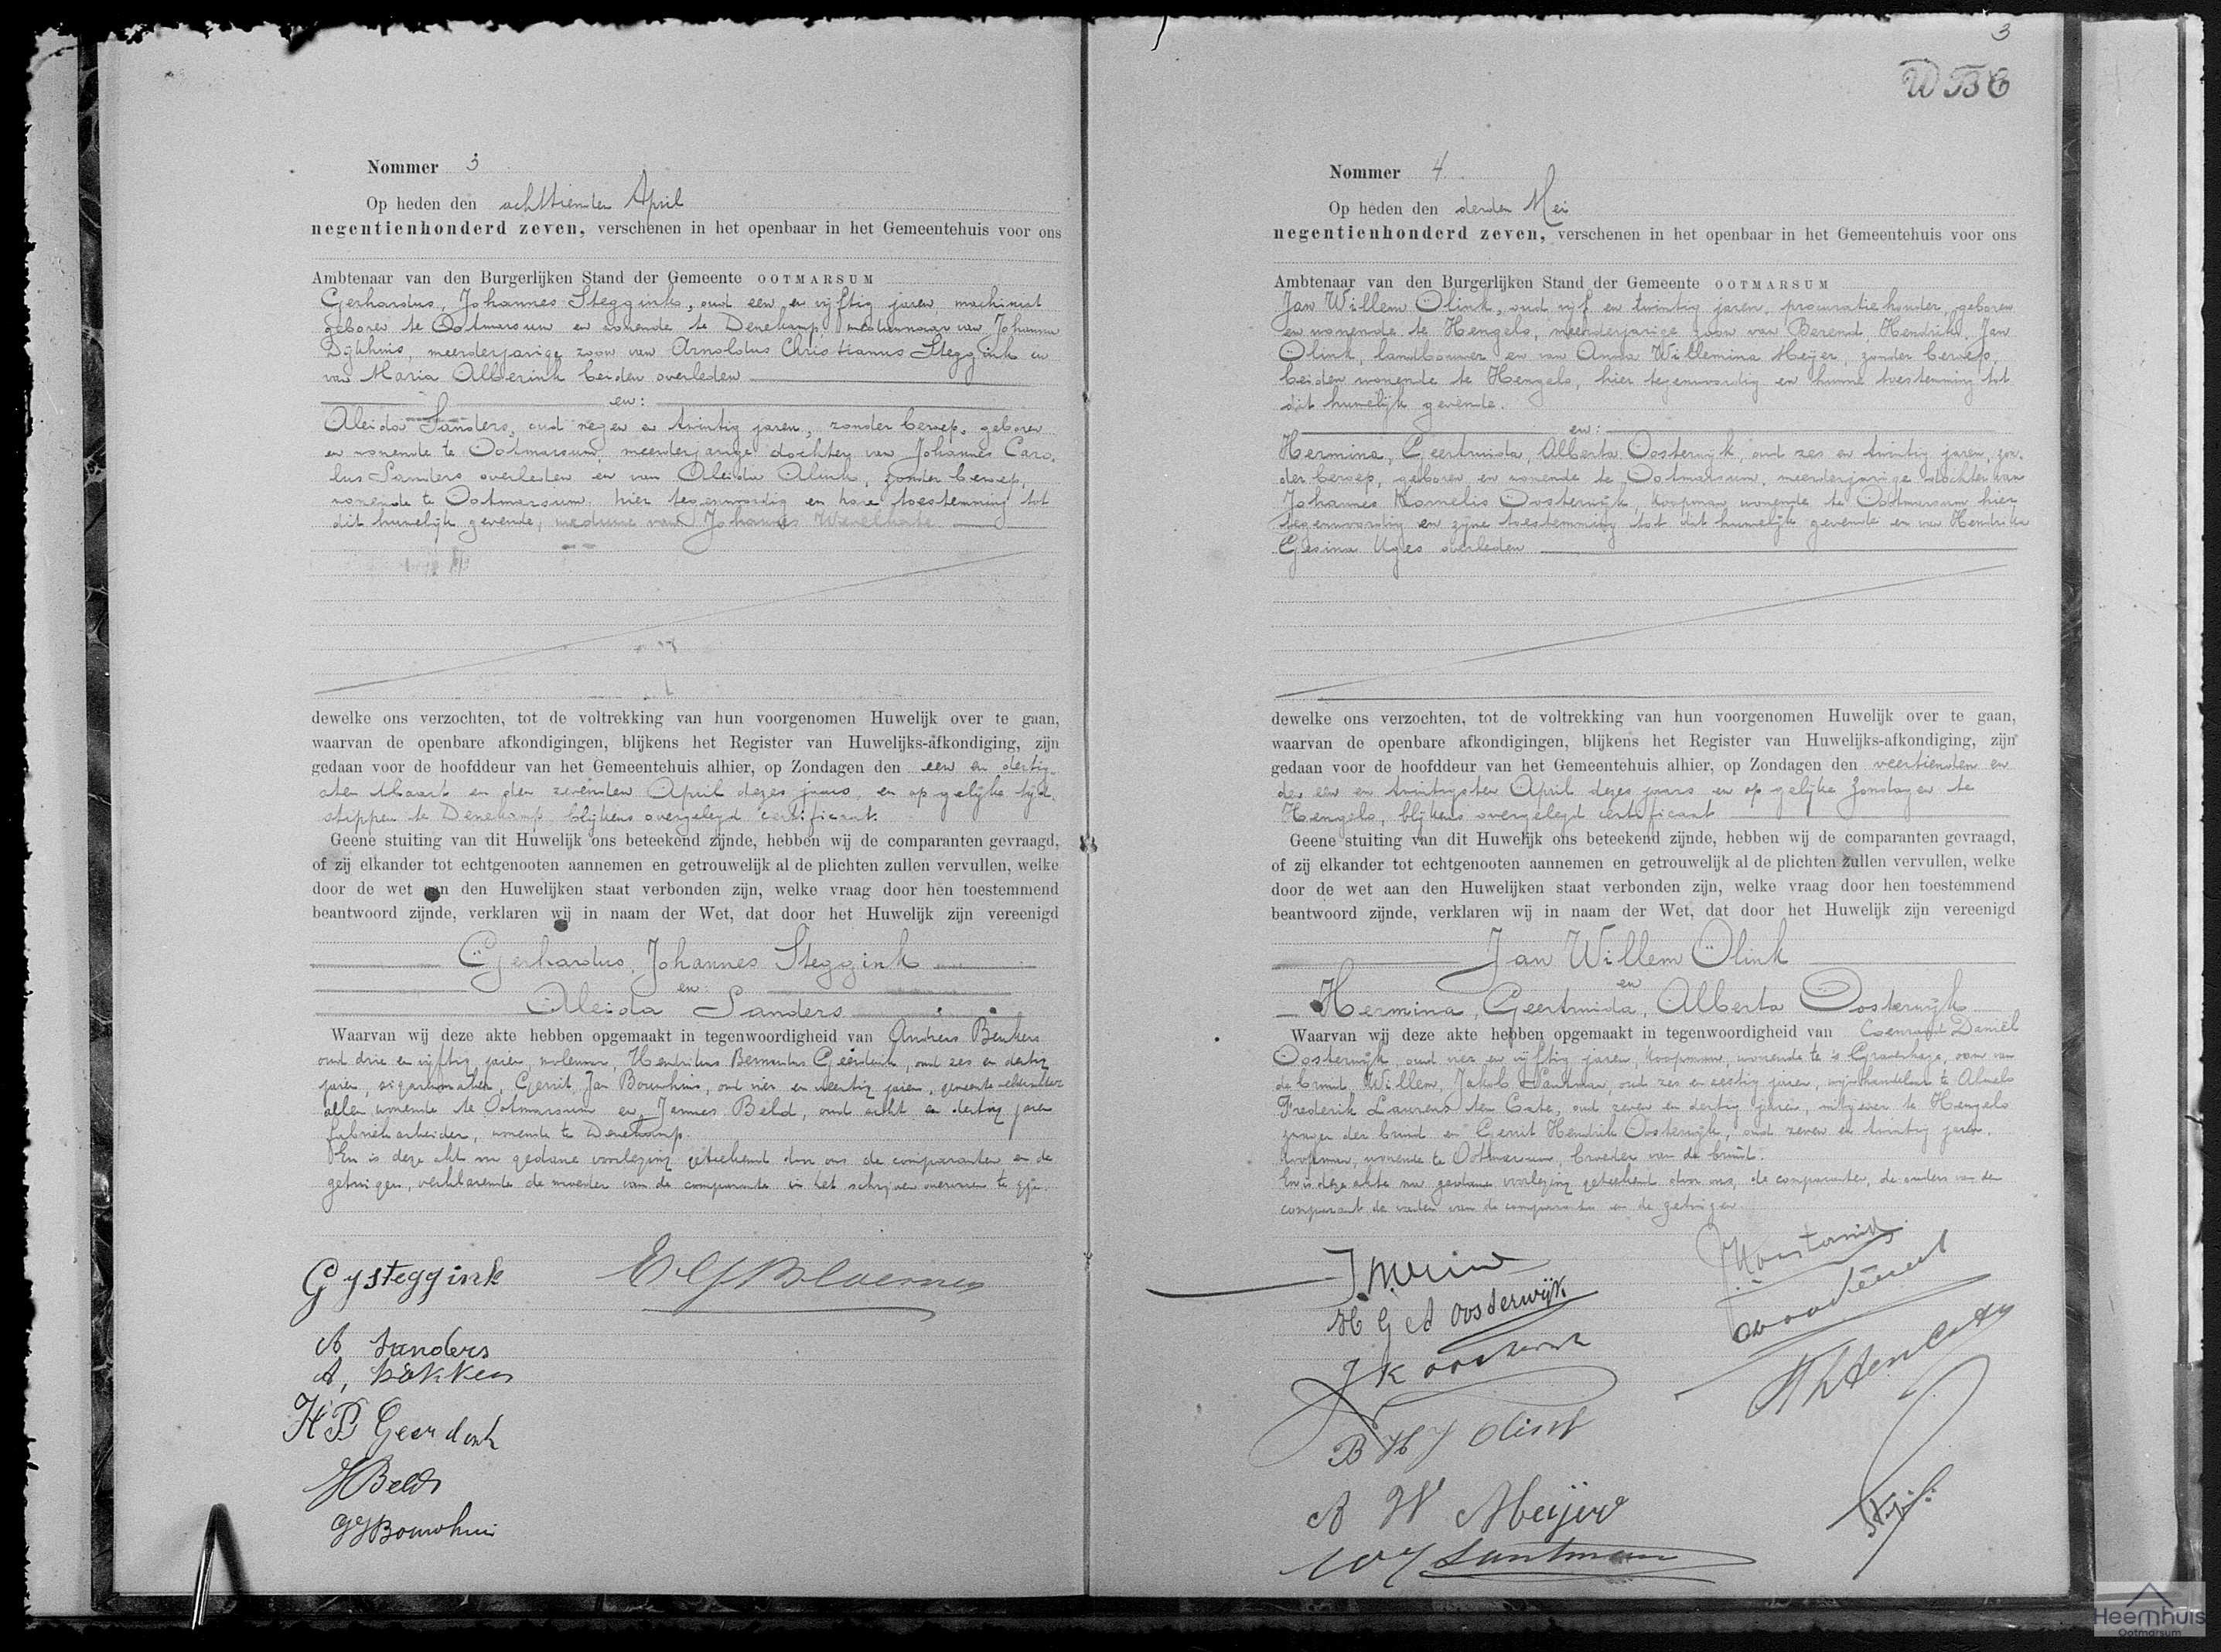 Nommer 3
Op heden den achttienden April
negentienhonderd zeven, verschenen in het openbaar in het Gemeentehuis voor ons
Ambtenaar van den Burgerlijken Stand der Gemeente OOTMARSUM
Gerhardus, Johannes Steggink, oud een en vijftig jaren, machinist
geboren te Ootmarsum en wonende te Denekamp, weduwnaar van Johanna
Dijkhuis, meerderjarige zoon van Arnoldus Christianus Steggink en
van Maria Alberink beiden overleden
en:
Aleida Sanders, oud negen en twintig jaren, zonder beroep, geboren
en wonende te Ootmarsum, meerderjarige dochter van Johannes Caro-
lus Sanders overleden en van Aleida Olink, zonder beroep,
wonende te Ootmarsum, hier tegenwoordig en hare toestemming tot
dit huwelijk gevende, weduwe van Johannes
dewelke ons verzochten, tot de voltrekking van hun voorgenomen Huwelijk over te gaan,
waarvan de openbare afkondigingen, blijkens het Register van Huwelijks-afkondiging, zijn
gedaan voor de hoofddeur van het Gemeentehuis alhier, op Zondagen den een en dertig-
sten Maart en den zevenden April dezes jaars, en op gelijke tijd-
stippen te Denekamp, blijkens overgelegd certificaat.
Geene stuiting van dit Huwelijk ons beteekend zijnde, hebben wij de comparanten gevraagd,
of zij elkander tot echtgenooten aannemen en getrouwelijk al de plichten zullen vervullen, welke
door de wet aan den Huwelijken staat verbonden zijn, welke vraag door hen toestemmend
beantwoord zijnde, verklaren wij in naam der Wet, dat door het Huwelijk zijn vereenigd
Gerhardus, Johannes Steggink
en:
Aleida Sanders
Waarvan wij deze akte hebben opgemaakt in tegenwoordigheid van Andreas
oud drie en vijftig jaren, molenaar, Hendrikus Bernardus Geerdink, oud zes en dertig
jaren, sigarenmaker, Gerrit Jan Bouwhuis, oud vier en veertig jaren, gemeente veldwachter
allen wonende te Ootmarsum en Jannes Beld, oud acht en dertig jaren
fabriekarbeider, wonende te Denekamp.
En is deze akte na gedane voorlezing geteekend door ons de comparanten en de
getuigen, verklarende de moeder van de comparante in het schrijven onervaren te zijn.
G J Steggink
A Sanders
A, Bökkers
H B Geerdink
J Beld
G J Bouwhuis
3
WBC
Nommer 4
Op heden den derden Mei
negentienhonderd zeven, verschenen in het openbaar in het Gemeentehuis voor ons
Ambtenaar van den Burgerlijken Stand der Gemeente OOTMARSUM
Jan Willem Olink, oud vijf en twintig jaren, procuratiehouder, geboren
en wonende te Hengelo, meerderjarige zoon van Berend, Hendrik, Jan
Olink, landbouwer en van Anna Willemina Meijer, zonder beroep,
beiden wonende te Hengelo, hier tegenwoordig en hunne toestemming tot
dit huwelijk gevende.
en:
Hermina, Geertruida, Alberta Oosterwijk, oud zes en twintig jaren, zon-
der beroep, geboren en wonende te Ootmarsum, meerderjarige dochter van
Johannes Kornelis Oosterwijk, koopman wonende te Ootmarsum, hier
tegenwoordig en zijne toestemming tot dit huwelijk gevende en van Hendrika
Gesina Uges overleden
dewelke ons verzochten, tot de voltrekking van hun voorgenomen Huwelijk over te gaan,
waarvan de openbare afkondigingen, blijkens het Register van Huwelijks-afkondiging, zijn
gedaan voor de hoofddeur van het Gemeentehuis alhier, op Zondagen den veertienden en
den een en twintigsten April dezes jaars en op gelijke Zondagen te
Hengelo, blijkens overgelegd certificaat
Geene stuiting van dit Huwelijk ons beteekend zijnde, hebben wij de comparanten gevraagd,
of zij elkander tot echtgenooten aannemen en getrouwelijk al de plichten zullen vervullen, welke
door de wet aan den Huwelijken staat verbonden zijn, welke vraag door hen toestemmend
beantwoord zijnde, verklaren wij in naam der Wet, dat door het Huwelijk zijn vereenigd
Jan Willem Olink
en
Hermina, Geertruida, Alberta Oosterwijk
Waarvan wij deze akte hebben opgemaakt in tegenwoordigheid van Coenraad Daniël
Oosterwijk, oud vier en vijftig jaren, koopman, wonende te 's Gravenhage, oom van
de bruid, Willem, Jakob Santman, oud zes en zestig jaren, wijnhandelaar te Almelo
Frederik Laurens ten Cate, oud zeven en dertig jaren, uitgever te Hengelo
zwager der bruid en Gerrit Hendrik Oosterwijk, oud zeven en twintig jaren,
koopman, wonende te Ootmarsum, broeder van de bruid.
En is deze akte na gedane voorlezing geteekend door ons, de comparanten, de ouders van den
comparant, de vader van de comparante en de getuigen.
H G A Oosterwijk
J K Oosterwijk
B H J Olink
A W Meijer
W J Santman
F L ten Cate
Heemhuis
Ootmarsum